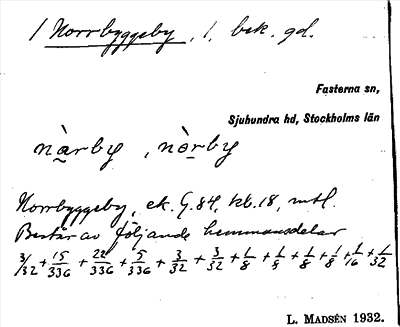 / Norrbyggeby, 1. bek. gd.
Fasterna sn,
Sjuhundra hd, Stockholms län
nàrby, nòrby
Norrbyggeby, ek. G.84, kb.18, mtl.
Består av följande hemmansdelar
3/32 + 15/336 + 22/336 + 5/336 + 3/32 + 3/32 + 1/8 + 1/8 + 1/8 + 1/8 + 1/16 + 1/32
L. MADSÉN 1932.